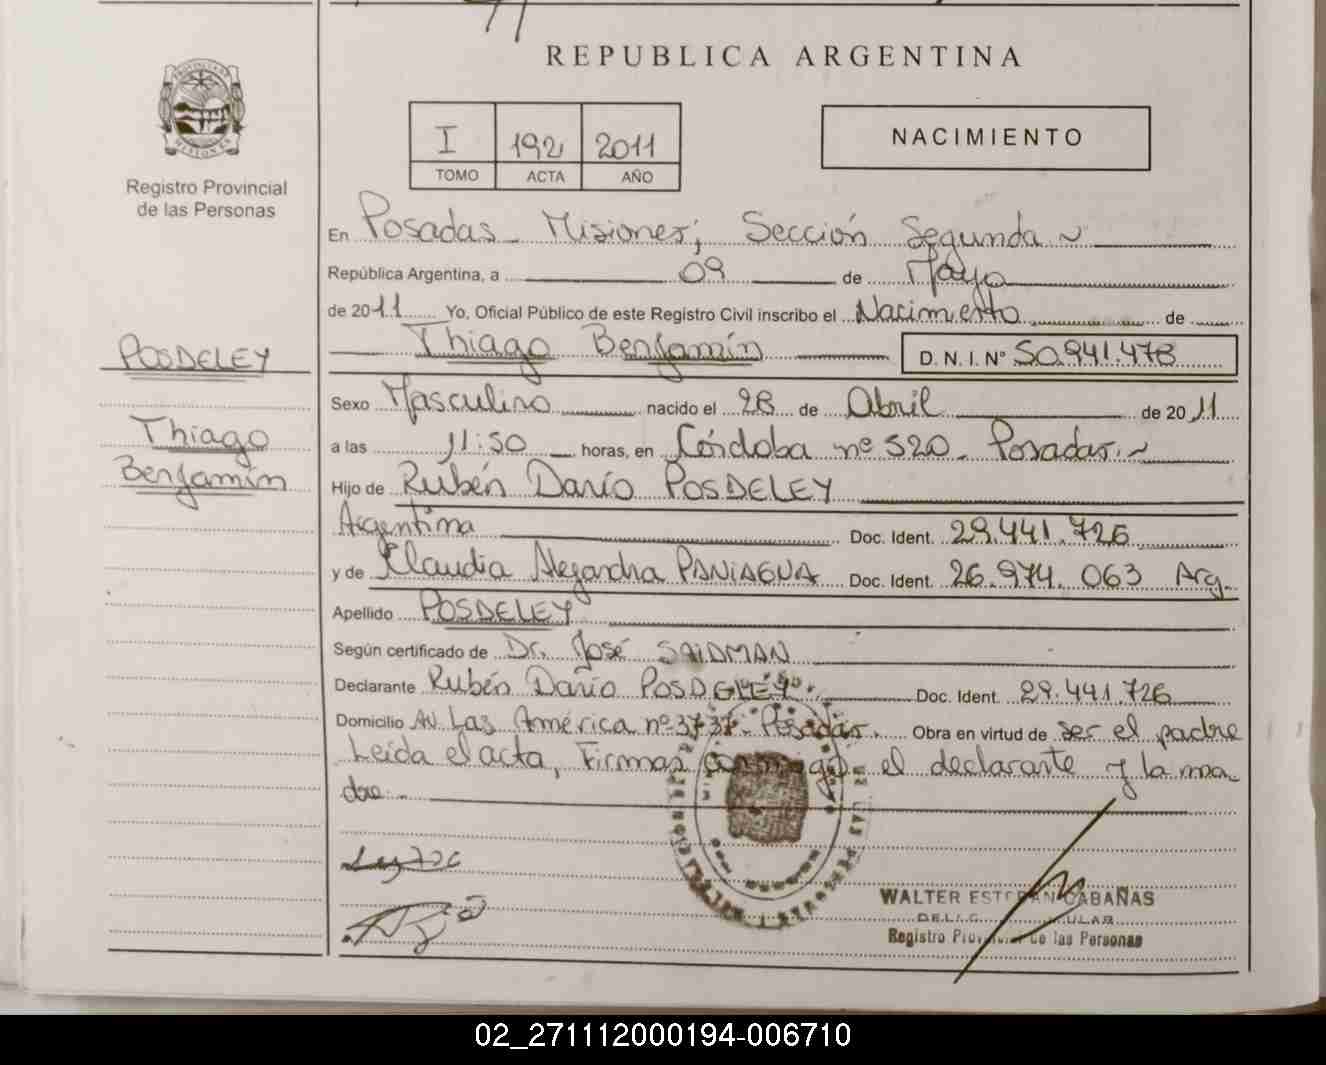 REPUBLICA ARGENTINA
PROVINCIA DE
MISIONES
Registro Provincial
de las Personas
I 192 2011
TOMO ACTA AÑO
NACIMIENTO
En Posadas Misiones, Sección Segunda
República Argentina, a 09 de Mayo
de 2011 Yo, Oficial Público de este Registro Civil inscribo el Nacimiento de
Thiago Benjamín D. N. I. Nº 50.941.478
POSDELEY
Thiago
Benjamín
Sexo Masculino nacido el 28 de Abril de 2011
a las 11:50 horas, en Córdoba nº 520. Posadas.
Hijo de Rubén Darío POSDELEY
Argentina Doc. Ident. 29.441.726
y de Claudia Alejandra PANIAGUA Doc. Ident. 26.974.063 Arg.
Apellido POSDELEY
Según certificado de Dr. José SAIDMAN
Declarante Rubén Darío POSDELEY Doc. Ident. 29.441.726
Domicilio Av. Las América nº 3737. Posadas. Obra en virtud de ser el padre
Leída el acta, Firman conmigo el declarante y la ma
dre.
WALTER ESTEBAN CABAÑAS
Registro Provincial de las Personas
02_271112000194-006710